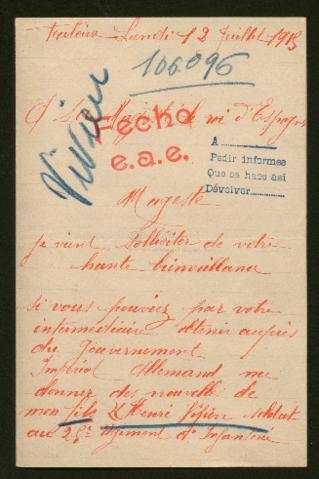 Lundi 12 Juillet 1915
106.096
A Sa Majesté le roi d'Espagne
Fecho
e.a.e.
A
Pedir informes
Que se hace así
Devolver
Majesté
je vient solliciter de votre
haute bienveillance
si vous pouviez par votre
intermédiaire obtenir auprès
du Gouvernement
Impérial Allemand me
donner des nouvelles de
mon fils Henri soldat
au régiment d'Infanterie